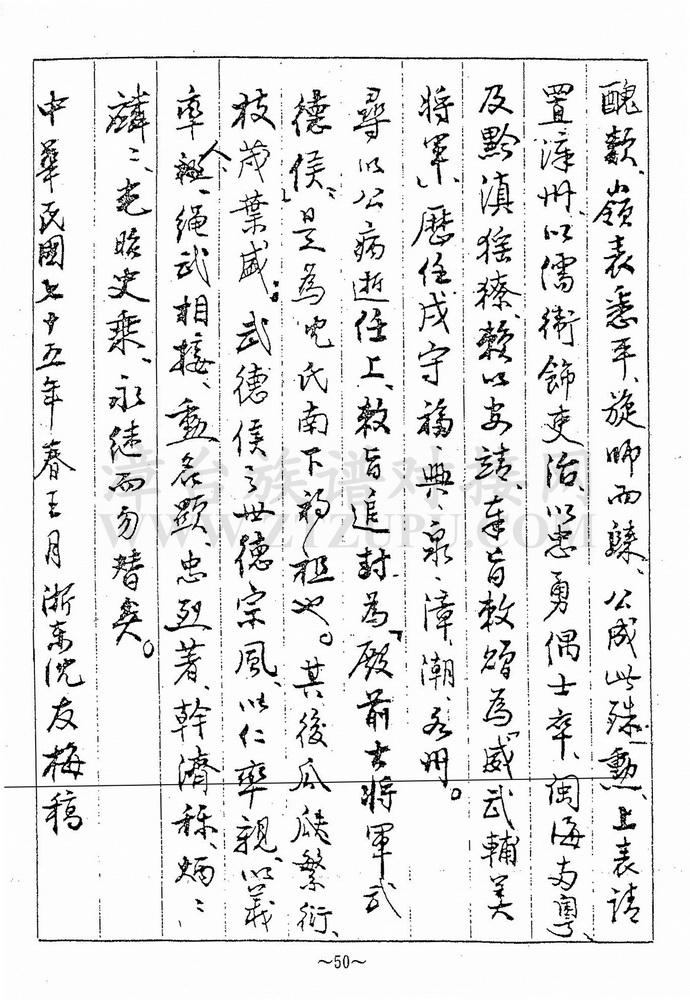 醜類、嶺表悉平、旋師而歸、公成此殊勳、上表請
置漳州、以儒術飾吏治、以忠勇偶士卒、閩海南粵、
及黔滇猺獠、賴以安靖、奉旨敕頒為「威武輔美
將軍」、歷任戍守福、興、泉、漳、潮、各州。
尋以公病逝任上、敕旨追封為「殿前大將軍武
德侯」、是為沈氏南下初祖也。其後瓜瓞繁衍、
枝茂葉盛。武德侯之世德宗風、以仁率親、以義
率祖、人繩武相接、勳名顯、忠烈著、幹濟稱、炳ミ
麟ミ、光昭史乘、永徒而勿替矣。
中華民國七十五年春三月浙東沈友梅稿
~50~
漳台族谱对接网
WWW.ZTZUPU.COM